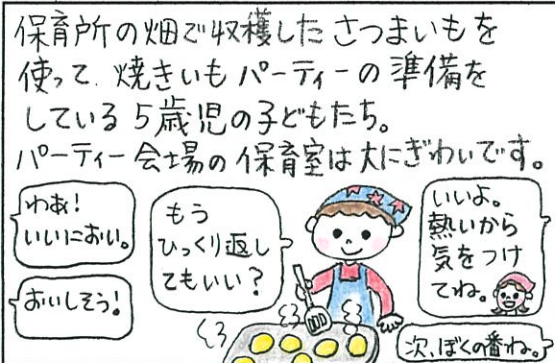 保育所の畑で収穫したさつまいもを
使って、焼きいもパーティーの準備を
している5歳児の子どもたち。
パーティー会場の保育室は大にぎわいです。
わあ!
いいにおい。
おいしそう!
もう
ひっくり返し
てもいい?
いいよ。
熱いから
気をつけ
てね。
次、ぼくの番ね。